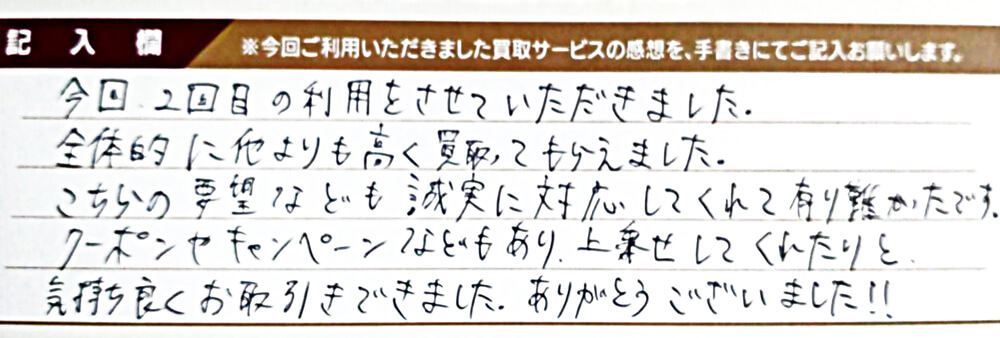 記入欄
※今回ご利用いただきました買取サービスの感想を、手書きにてご記入お願いします。
今回、2回目の利用をさせていただきました。
全体的に他よりも高く買取ってもらえました。
こちらの要望なども誠実に対応してくれて有り難かったです。
クーポンやキャンペーンなどもあり、上乗せしてくれたりと、
気持ち良くお取引きできました。ありがとうございました!!